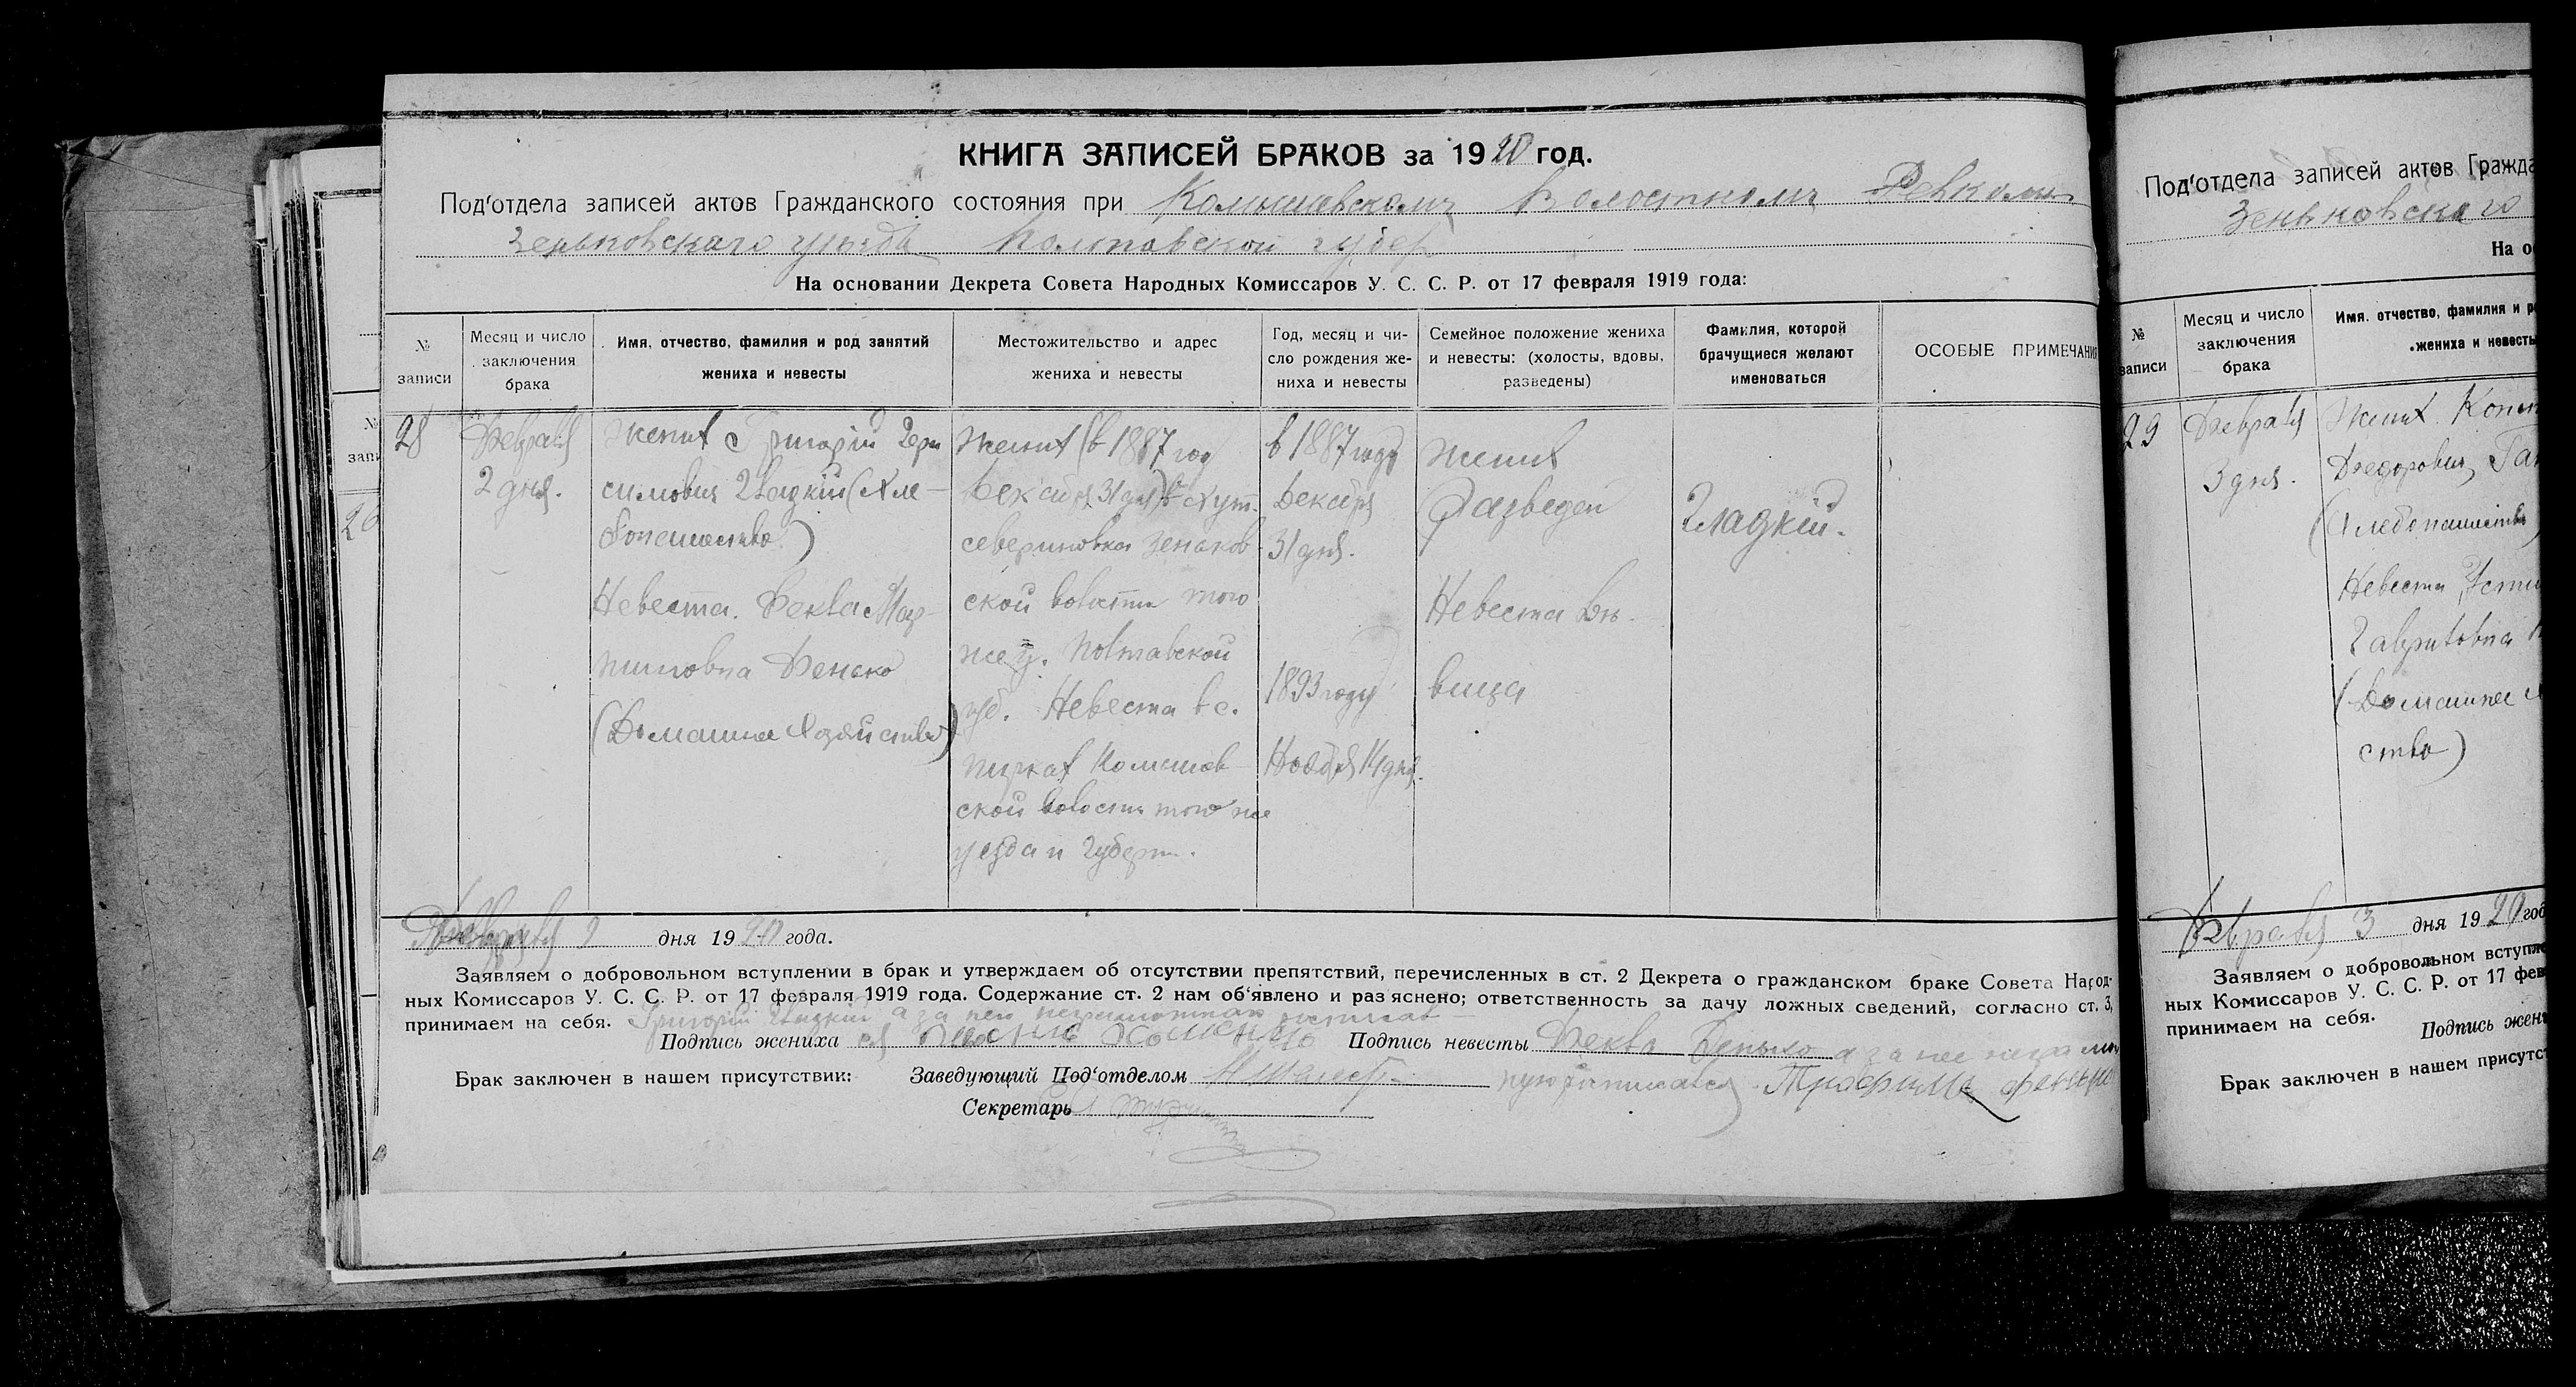 КНИГА ЗАПИСЕЙ БРАКОВ за 1920 год.
Под'отдела записей актов Гражданского состояния при Комышевскомъ Волостномъ Ревкоми
Зеньковскаго уѣзда Полтавской губер
На основании Декрета Совета Народных Комиссаров У. С. С. Р. от 17 февраля 1919 года:
№ записи
Месяц и число заключения брака
Имя, отчество, фамилия и род занятий жениха и невесты
Местожительство и адрес жениха и невесты
Год, месяц и число рождения жениха и невесты
Семейное положение жениха и невесты: (холосты, вдовы, разведены)
Фамилия, которой брачущиеся желают именоваться
ОСОБЫЕ ПРИМЕЧАНИ
28
Февраля
2 дня.
Жених Григорій Гера
симович Гладкій (Хле
бопашество)
Невеста. Фекла Мар
тиновна Фенько
(Домашнее Хозяйство)
Жених (в 1887 год
Декабря 31 дня) в хут.
Севериновка Зеньков
ской волости того
же у. Полтавской
губ. Невеста в с.
Пирках Комишов
ской волости того же
уезда и Губерн.
в 1887 году
Декабря
31 дня.
1893 году
Ноября 14 дня.
Жених
Разведен
Невеста Вдо
вица
Гладкій.
Февраля 2 дня 1920 года.
Заявляем о добровольном вступлении в брак и утверждаем об отсутствии препятствий, перечисленных в ст. 2 Декрета о гражданском браке Совета Народ-
ных Комиссаров У. С. С. Р. от 17 февраля 1919 года. Содержание ст. 2 нам об'явлено и раз яснено; ответственность за дачу ложных сведений, согласно ст. 3,
принимаем на себя. Григорій Гладкій а за него неграмотнаго росписав
Подпись жениха Хоменко Подпись невесты Фекла Фенько а за нее неграмот
Брак заключен в нашем присутствии: Заведующий Под'отделом
ную росписався Трофимъ Фенько
Секретарь
№ запи
Под'отдела записей актов Гражда
Зеньковскаго
На о
№ записи
Месяц и число заключения брака
Имя, отчество, фамилия и р
жениха и невесты
29
Февраля
3 дня.
Жених. Конст
Федорович Га
(Хлебопашество)
Невеста
Гавриловна
(Домашнее
ство)
Февраля 3 дня 1920 год
Заявляем о добровольном вступле
ных Комиссаров У. С. С. Р. от 17 фев
принимаем на себя.
Подпись жен
Брак заключен в нашем присутс